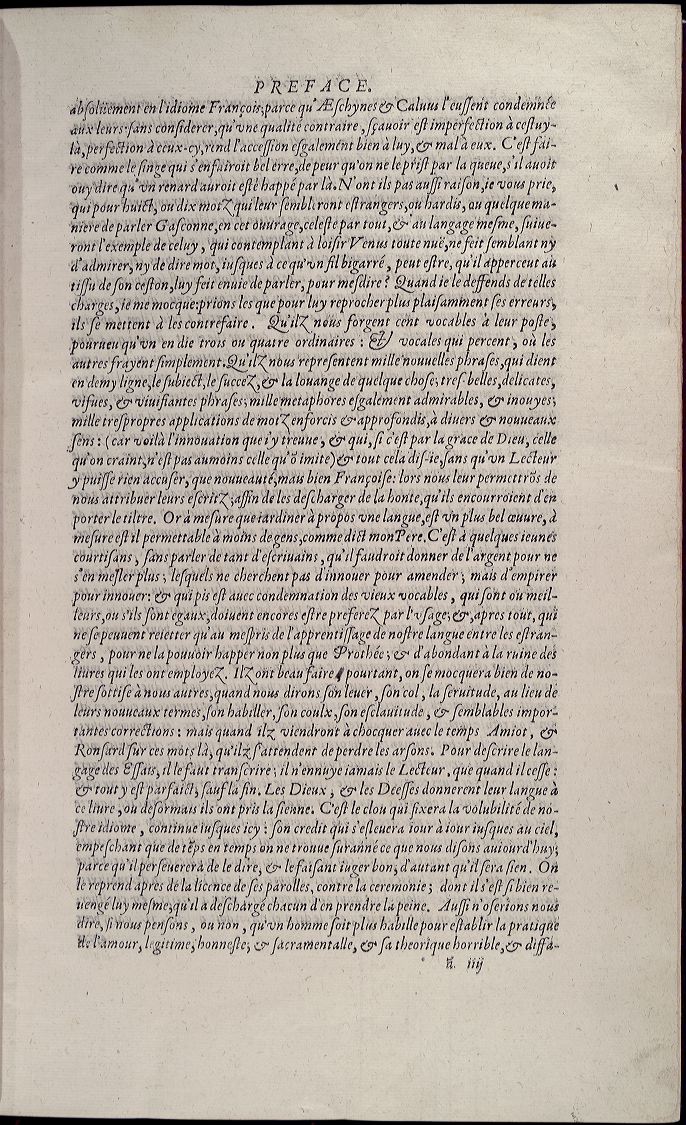 PREFACE.
absolüement en l'idiome François; parce qu'Æschynes & Caluus l'eussent condemnée
aux leurs: sans considerer, qu'vne qualité contraire, sçauoir est imperfection à cestuy-
là, perfection à ceux-cy, rend l'accession esgalement bien à luy, & mal à eux. C'est fai-
re comme le singe qui s'enfuiroit bel erre, de peur qu'on ne le prist par la queue, s'il auoit
ouy dire qu'vn renard auroit esté happé par là. N'ont ils pas aussi raison, ie vous prie,
qui pour huict, ou dix motz qui leur sembleront estrangers, ou hardis, ou quelque ma-
niere de parler Gasconne, en cet ouurage, celeste par tout, & au langage mesme, suiue-
ront l'exemple de celuy, qui contemplant à loisir Venus toute nuë, ne feit semblant ny
d'admirer, ny de dire mot, iusques à ce qu'vn fil bigarré, peut estre, qu'il apperceut au
tissu de son ceston, luy feit enuie de parler, pour mesdire? Quand ie le deffends de telles
charges, ie me mocque: prions les que pour luy reprocher plus plaisamment ses erreurs,
ils se mettent à les contrefaire. Qu'ilz nous forgent cent vocables à leur poste,
pourueu qu'vn en die trois ou quatre ordinaires: & vocales qui percent, où les
autres frayent simplement. Qu'ilz nous representent mille nouuelles phrases, qui dient
en demy ligne, le subiect, le succez, & la louange de quelque chose; tres-belles, delicates,
vifues, & viuifiantes phrases; mille metaphores esgalement admirables, & inouyes;
mille trespropres applications de motz enforcis & approfondis, à diuers & nouueaux
sens: (car voilà l'innouation que i'y treuue, & qui, si c'est par la grace de Dieu, celle
qu'on craint, n'est pas aumoins celle qu'õ imite) & tout cela dis-ie, sans qu'vn Lecteur
y puisse rien accuser, que nouueauté, mais bien Françoise: lors nous leur permettrõs de
nous attribuer leurs escritz, affin de les descharger de la honte, qu'ils encourroient d'en
porter le tiltre. Or à mesure que iardiner à propos vne langue, est vn plus bel œuure, à
mesure est il permettable à moins de gens, comme dict mon Pere. C'est à quelques ieunes
courtisans, sans parler de tant d'escriuains, qu'il faudroit donner de l'argent pour ne
s'en mesler plus; lesquels ne cherchent pas d'innouer pour amender; mais d'empirer
pour innouer: & qui pis est auec condemnation des vieux vocables, qui sont ou meil-
leurs, ou s'ils sont egaux, doiuent encores estre preferez par l'vsage; & apres tout, qui
ne se peuuent reietter qu'au mespris de l'apprentissage de nostre langue entre les estran-
gers, pour ne la pouuoir happer non plus que Prothée; & d'abondant à la ruine des
liures qui les ont employez. Ilz ont beau faire pourtant, on se mocquera bien de no-
stre sottise à nous autres, quand nous dirons son leuer, son col, la seruitude, au lieu de
leurs nouueaux termes, son habiller, son coulx, son esclauitude, & semblables impor-
tantes corrections: mais quand ilz viendront à chocquer auec le temps Amiot, &
Ronsard sur ces mots là, qu'ilz s'attendent de perdre les arsons. Pour descrire le lan-
gage des Essais, il le faut transcrire; il n'ennuye iamais le Lecteur, que quand il cesse:
& tout y est parfaict, sauf la fin. Les Dieux, & les Deesses donnerent leur langue à
ce liure, ou desormais ils ont pris la sienne. C'est le clou qui fixera la volubilité de no-
stre idiome, continue iusques icy: son credit qui s'esleuera iour à iour iusques au ciel,
empeschant que de tẽps en temps on ne trouue suranné ce que nous disons auiourd'huy;
parce qu'il perseuerera de le dire, & le faisant iuger bon, d'autant qu'il sera sien. On
le reprend apres de la licence de ses parolles, contre la ceremonie; dont il s'est si bien re-
uengé luy mesme, qu'il a deschargé chacun d'en prendre la peine. Aussi n'oserions nous
dire, si nous pensons, ou non, qu'vn homme soit plus habille pour establir la pratique
de l'amour, legitime, honneste, & sacramentalle, & sa theorique horrible, & diffa-
ã. iiij